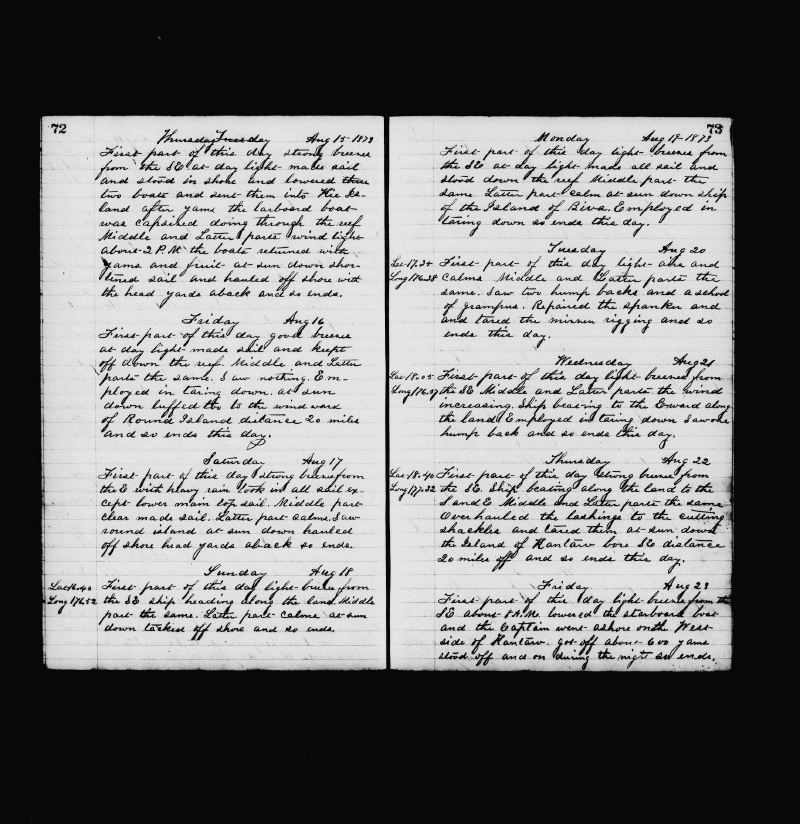 72
Thursday Tuesday Aug 15-1873
First part of this day strong breeze
from the SE at day light made sail
and stood in shore and lowered three
two boats and sent them into Hie Is-
land after yams the larboard boat
was capsised doing through the reef
Middle and Latter parts wind light
about 2 P.M the boats returned with
yams and fruit at sun down shor-
tined sail and hauled off shore with
the head yards aback and so ends.
Friday Aug 16
First part of this day good breeze
at day light made sail and keept
off down the reef. Middle and Latter
parts the same. Saw nothing. Em-
ployed in taring down. at sun
down luffed too to the wind ward
of Round Island distance 20 miles
and so ends this day.
Saturday Aug 17
First part of this day strong breeze from
the E with heavy rain took in all sail ex-
cept lower main top sail. Middle part
clear made sail. Latter part calms. Saw
round island at sun down hauled
off shore head yards aback so ends.
Sunday Aug 18
Lat 16.40 First part of this day light breeze from
Long 176.52 the SE ship heading along the land. Middle
part the same. Latter part calms at sun
down tacked off shore and so ends.
73
Monday Aug 19-1873
First part of this day light breeze from
the SE at day light made all sail and
stood down the reef Middle part the
same Latter part calm at sun down ship
of the Island of Biva. Employed in
taring down so ends this day.
Tuesday Aug 20
Lat 17.24 First part of this day light airs and
Long 176.38 calms Middle and Latter parts the
same. Saw two hump backs and a school
of grampus. Repaired the spanker and
and tared the mizzen rigging and so
ends this day.
Wednesday Aug 21
Lat 18.05 First part of this day light breeze from
Long 176.57 the SE Middle and Latter parts the wind
increasing. Ship bearing to the Eward along
the land Employed in taring down Saw one
hump back and so ends this day.
Thursday Aug 22
Lat 18.40 First part of this day strong breeze from
Long 177.32 the SE. Ship beating along the land to the
S and E Middle and Latter parts the same
Overhauled the lashings to the cutting
shackles and tared them at sun down
the Island of Kantavu bore SE distance
20 miles off and so ends this day.
Friday Aug 23
First part of this day light breeze from the
SE about A.M. lowered the starboard boat
and the Captain went ashore on the West
side of Kantavu. got off about 600 yams
stood off and on during the night so ends.